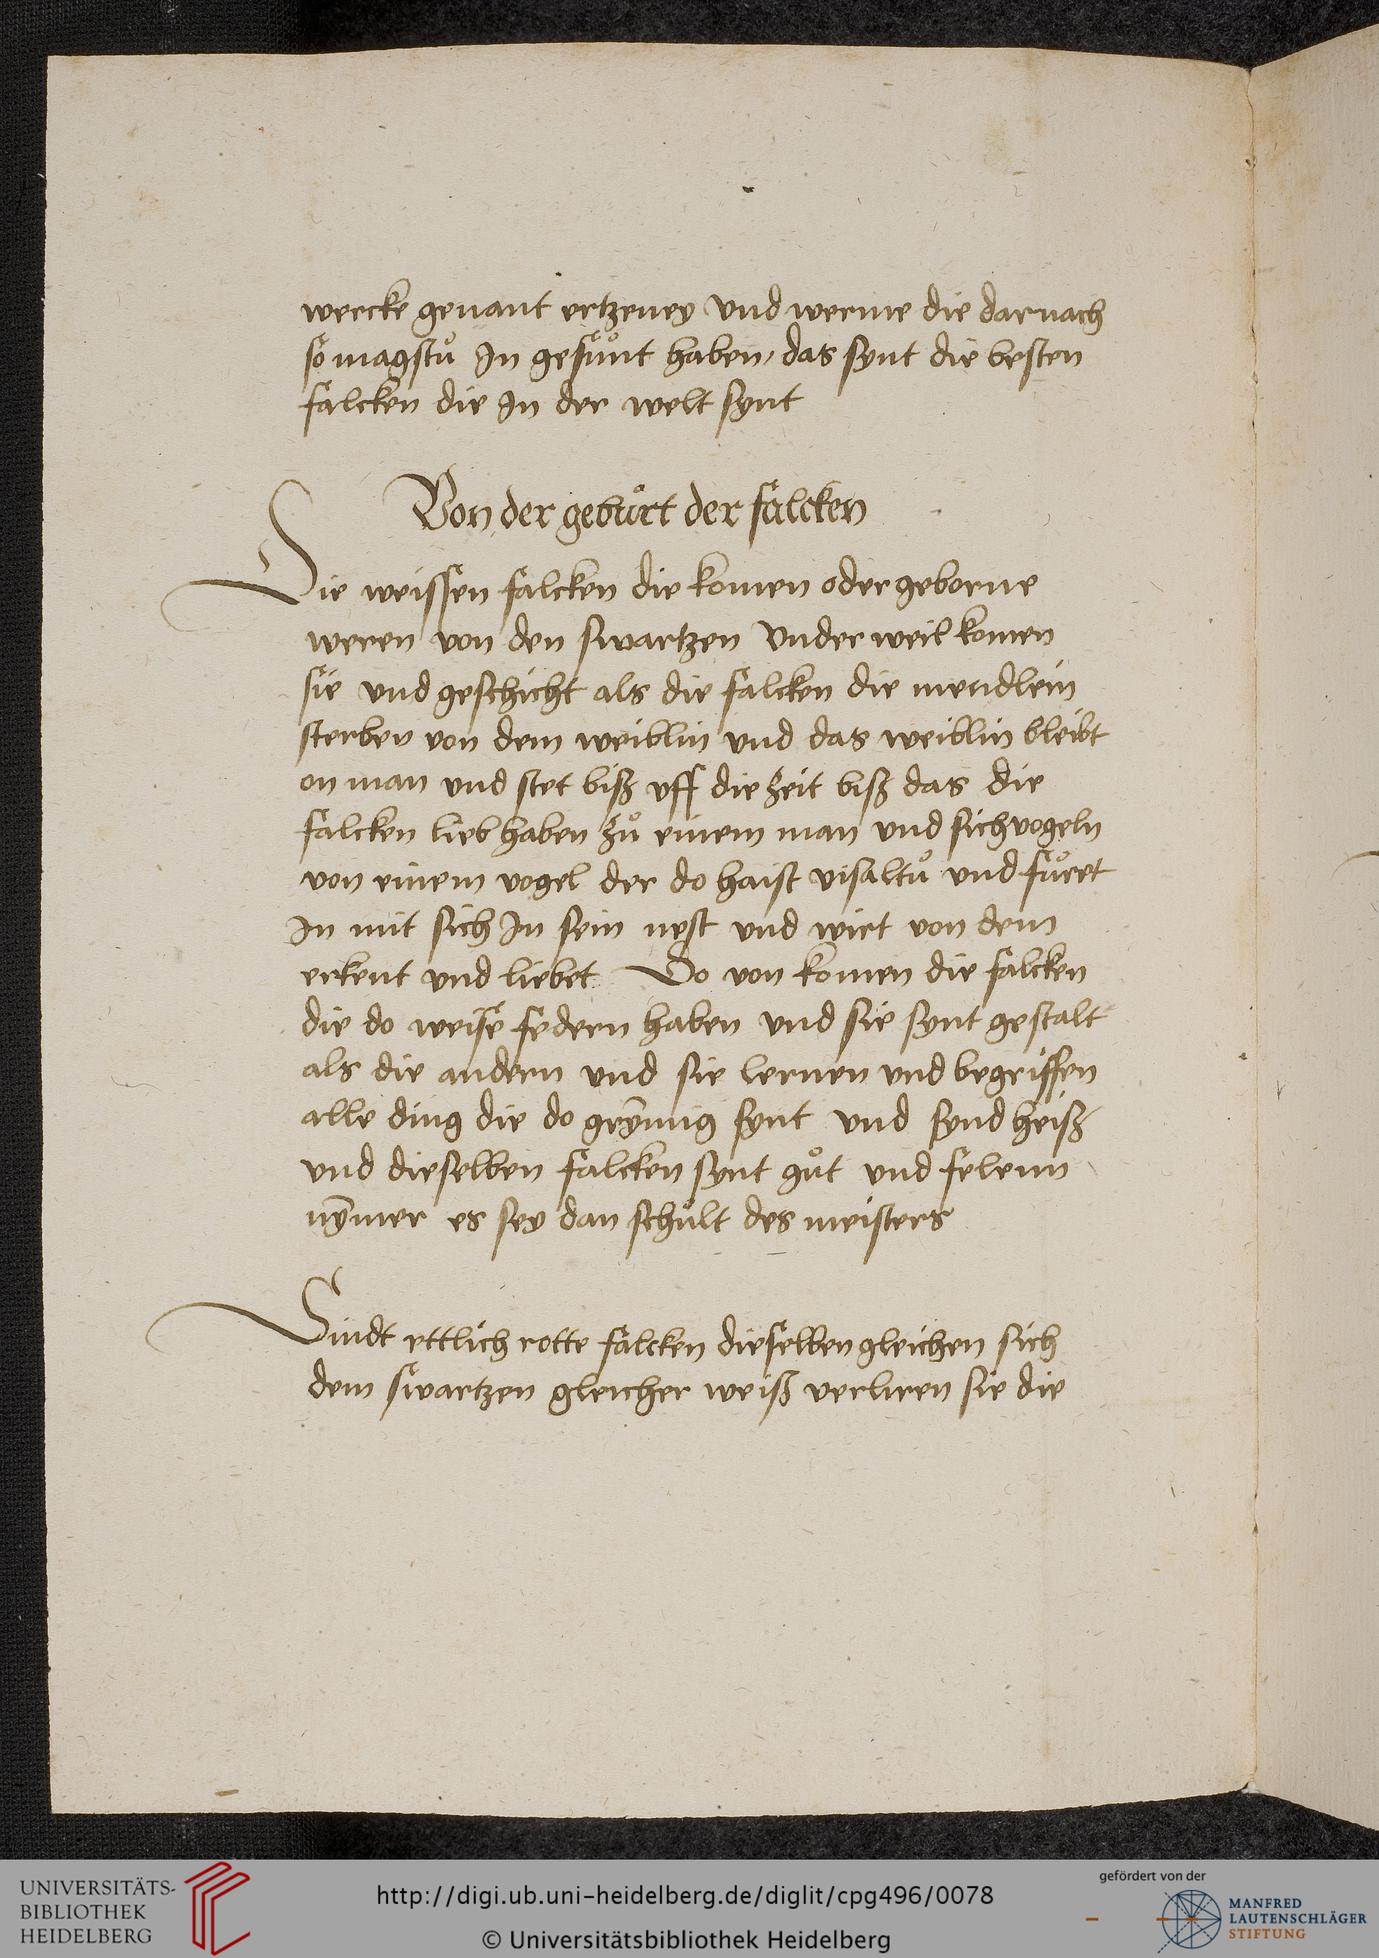 wercke genant ertzeney vnd werme die darnach
so magstů In gesůnt haben, das synt die besten
falcken die In der welt synt
Von der gebůrt der falcken
Die weissen falcken die komen oder geborne
weren von den swartzen Vnderweil komen
sie vnd geschicht als die falcken die mendlein
sterben von dem weiblin vnd das weiblin bleibt
on man vnd stet bisz vff die zeit bisz das die
falcken lieb haben zů einem man vnd sich vogeln
von einem vogel der do haist visaltů vnd fůret
In mit sich In sein nest vnd wirt von dem
erkent vnd liebet Do von komen die falcken
die do weise federn haben vnd sie synt gestalt
als die andern vnd sie lernen vnd begriffen
alle ding die do grȳmig synt vnd synd heisz
vnd dieselben falcken synt gůt vnd felenn
nȳmer es sey dan schůlt des meisters
Sindt ettlich rotte falcken dieselben gleichen sich
dem swartzen gleicher weiß verliren sie die
UNIVERSITÄTS-
BIBLIOTHEK
HEIDELBERG
http://digi.ub.uni-heidelberg.de/diglit/cpg496/0078
© Universitätsbibliothek Heidelberg
gefördert von der
MANFRED
LAUTENSCHLÄGER
STIFTUNG